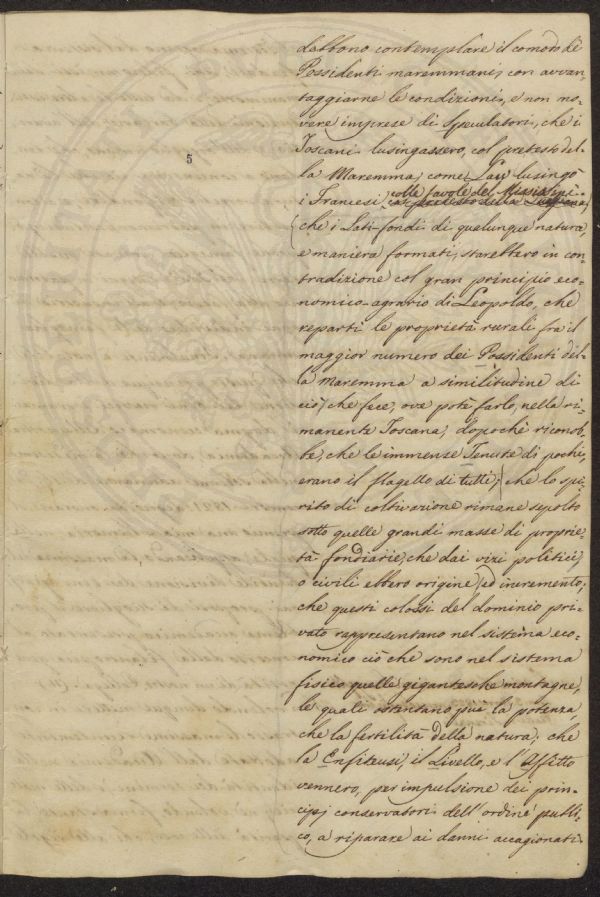 debbono contemplare il comodo de
Possidenti maremmani, con avvan-
taggiarne le condizioni, e non mo-
vere imprese di Speculatori, che i
5
Toscani lusingassero, col pretesto del-
la Maremma, come Law lusingò
colle favole del Mississipi
i Francesi, col pretesto della
che i Lati-fondi di qualunque natura,
e maniera formati, starebbero in con-
tradizione col gran principio eco-
nomico-agrario di Leopoldo, che
repartì le proprietà rurali fra il
maggior numero dei Possidenti del-
la Maremma a similitudine di
ciò, che fece, ove potè farlo, nella ri-
manente Toscana, dopochè riconob-
be, che le immense Tenute di pochi,
erano il flagello di tutti; che lo spi-
rito di coltivazione rimane sepolto
sotto quelle grandi masse di proprie-
tà fondiarie, che dai vizi politici,
o civili ebbero origine, ed incremento;
che questi colossi del dominio pri-
vato rappresentano nel sistema eco-
nomico ciò che sono nel sistema
fisico quelle gigantesche montagne,
le quali ostentano più la potenza,
che la fertilità della natura; che
la Enfiteusi, il Livello, e l'Affitto
vennero, per impulsione dei prin-
cipj conservatori dell'ordine pubbli-
co, a riparare ai danni accagionati